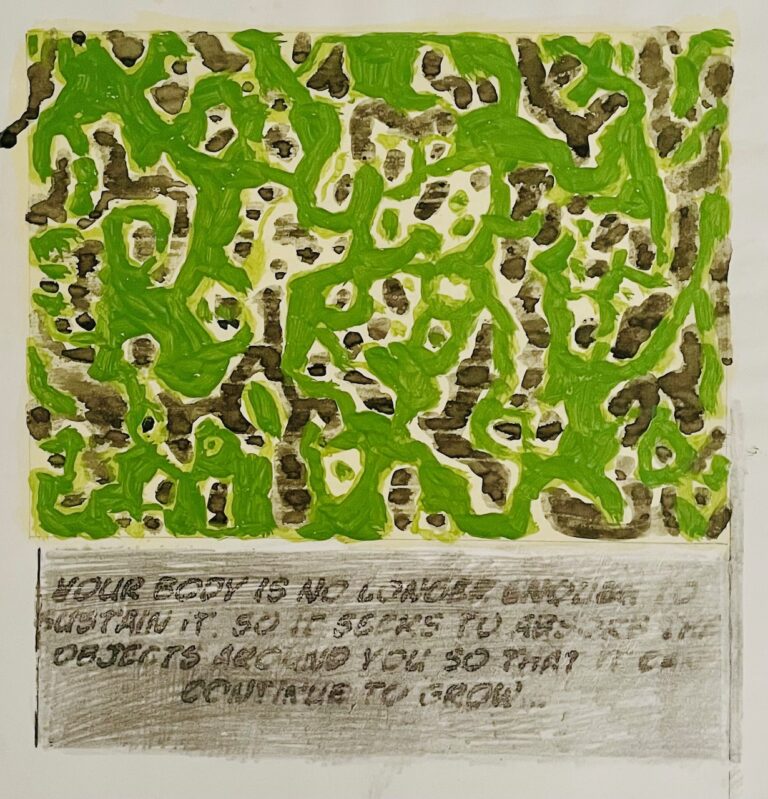 YOUR BODY IS NO LONGER ENOUGH TO
SUSTAIN IT. SO IT SEEKS TO ABSORB THE
OBJECTS AROUND YOU SO THAT IT CAN
CONTINUE TO GROW...